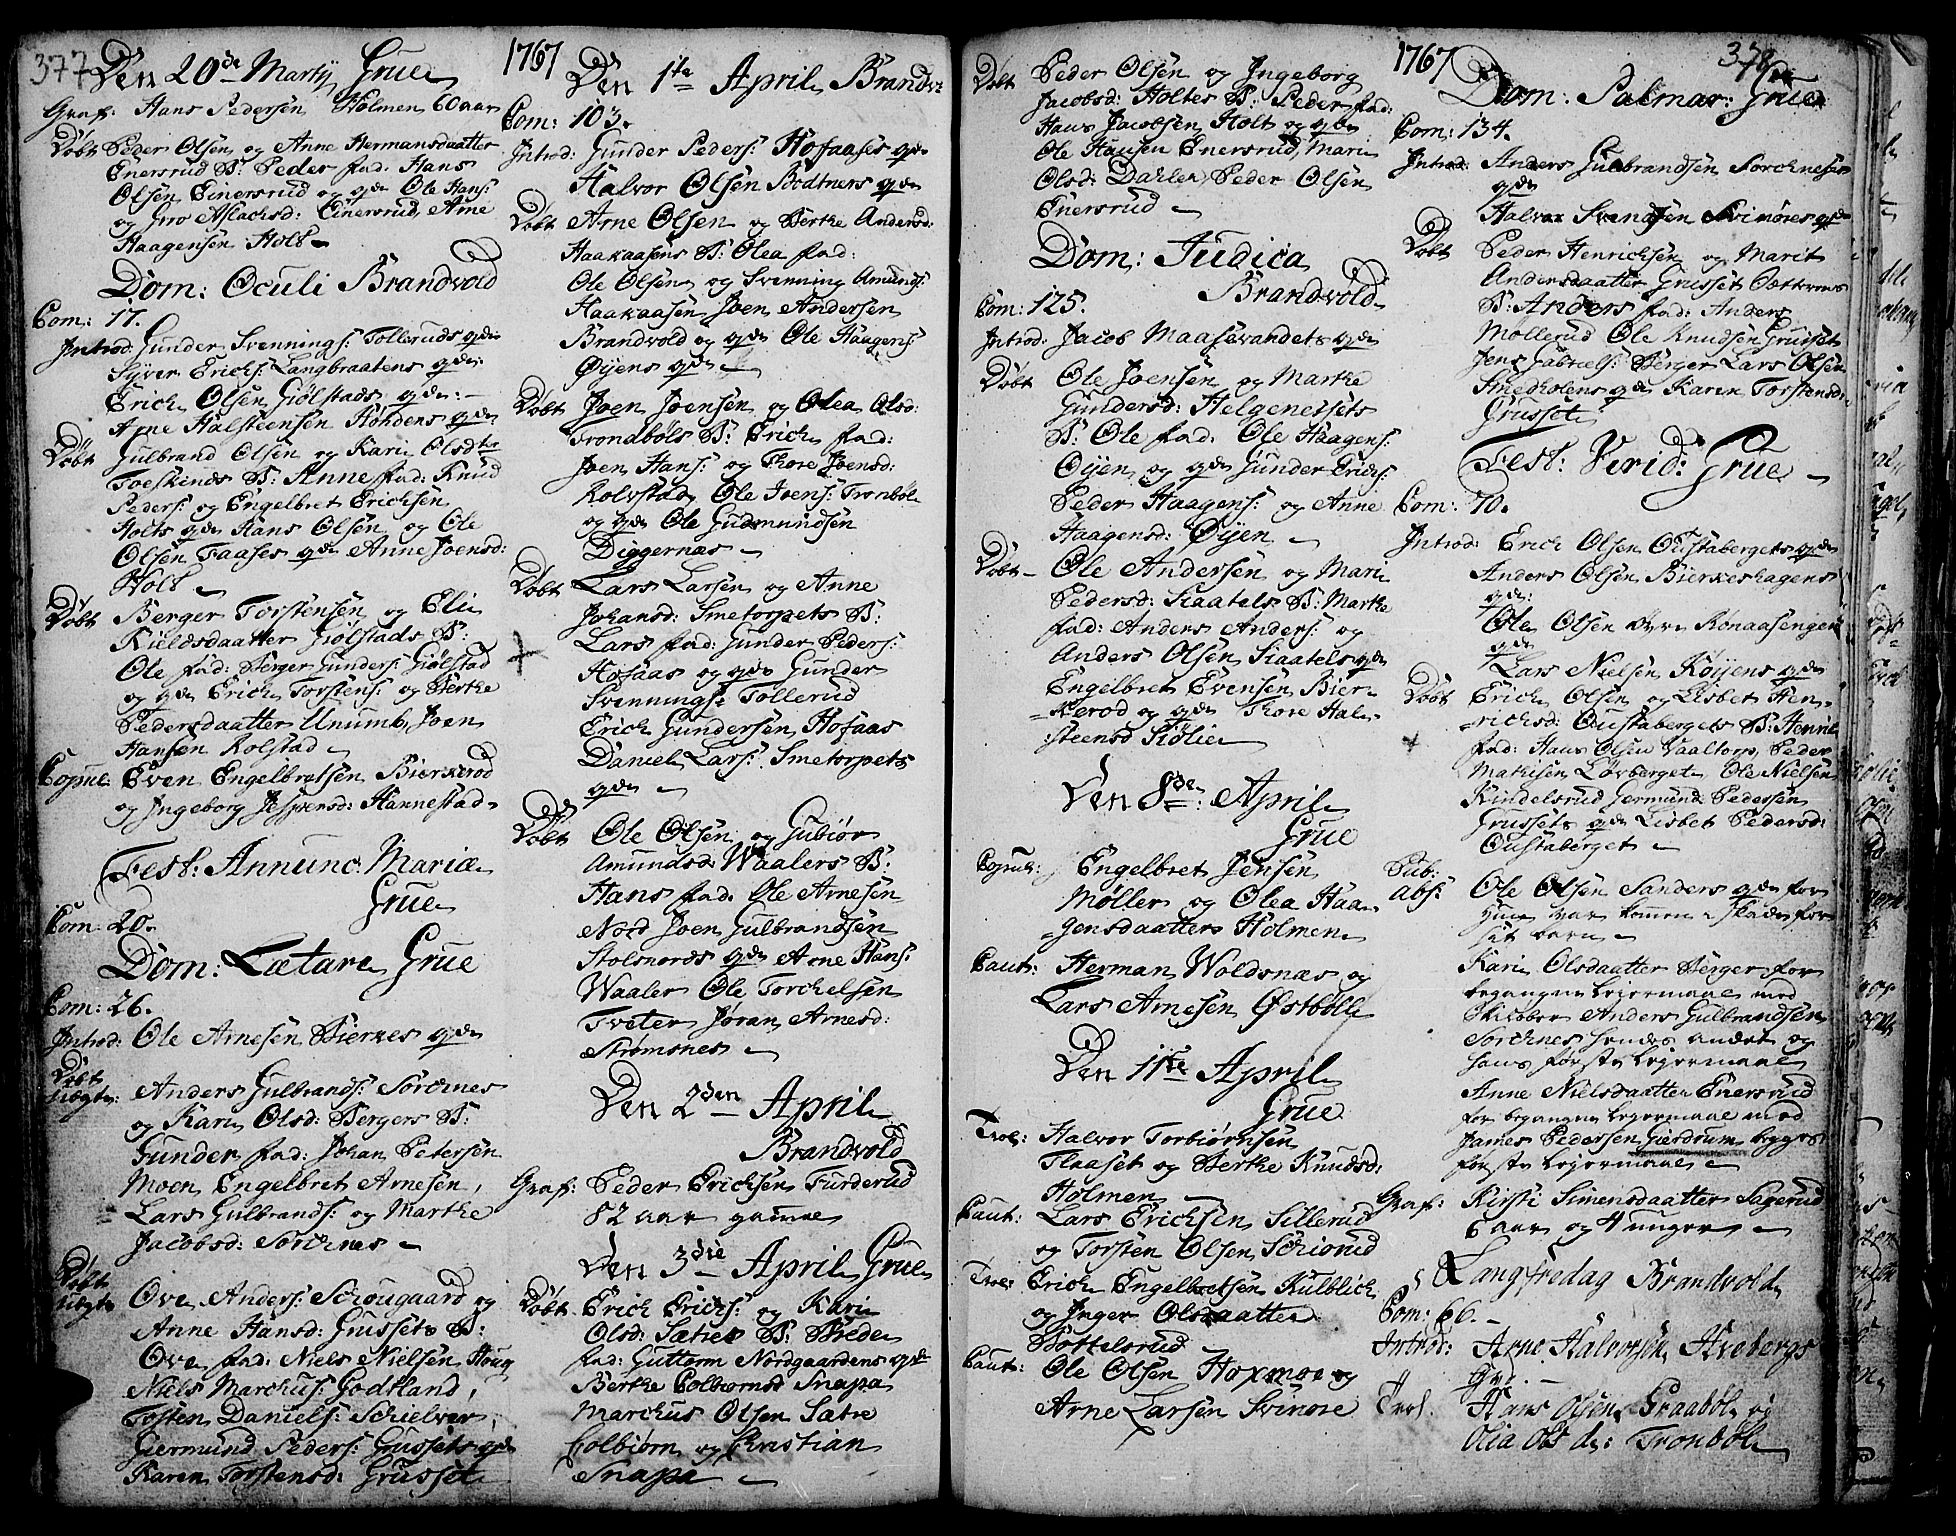 377
Den 20de Martij Grue
Graf: Hans Pedersen Holmen 60 aar
Døbt Peder Olsen og Anne Hermansdaatter
Enersrud B: Peder fad: Hans
Olsen Einersrud og qde Ole Hans:
og Gro Aslachsd: Einersrud, Arne
Haagensen Holt
Dom: Oculi Brandvold
Com: 17.
Introd: Gunder Svennings: Tolleruds qde
Syver Erichs: Langbraatens qde:
Erich Olsen Giølstads qde:
Arne Halsteensen Hohdens qde
Døbt Gulbrand Olsen og Kari Olsdtr
Toeskinds B: Anne fad: Knud
Peders: og Engelbret Erichsen
Holts qde Hans Olsen og Ole
Olsen Faases qde Anne Joensd:
Holt
Døbt Berger Torstensen og Eli
Kieldsdaatter Giølstads B:
Ole fad: Berger Gunders: Giølstad
og qde Erich Torstens: og Berthe
Pedersdaatter Unumb, Joen
Hansen Rolstad
Copul: Even Engelbretsen Bierkerod
og Ingeborg Jespersd: Hannestad
Fest: Annunc: Mariæ
Grue
Com: 20.
Dom: Lætare Grue
Com: 26.
Introd: Ole Arnesen Bierkes qde
Døbt
Uægte: Anders Gulbrands: Sorchnes
og Kari Olsd: Bergers B:
Gunder fad: Johan Petersen
Moen, Engelbret Arnesen,
Lars Gulbrands: og Marthe
Jacobsd: Sorchnes
Døbt
Uægte Ove Anders: Schougaard og
Anne Hansd: Grussets B:
Ove fad: Niels Nielsen Houg
Niels Marchus: Godtland,
Tosten Daniels: Schielver,
Giermund Peders: Grussets qde
Karen Torstensd: Grusset
1767
Den 1te April Brandv:
Com: 103.
Introd: Gunder Peders: Hofaases qde
Halvor Olsen Bodtners qde
Døbt Arne Olsen og Berthe Andersd:
Haakaasens B: Olea fad:
Ole Olsen og Svenning Amunds:
Haakaasen Joen Andersen
Brandvold og qde Ole Haagens:
Øijens qde
Døbt Joen Joensen og Olea Olsd:
Trondbøls B: Erich fad:
Joen Hans: og Thore Joensd:
Rolvstad, Ole Ivens: Tronbøl
og qde Ole Gudmundsen
Diggernæs
Døbt Lars Larsen og Anne
Johansd: Smetorpets B:
Lars fad: Gunder Peders:
Hofaas og qde Gunder
Svennings: Tollerud
Erich Gundersen Hofaas
Daniel Lars: Smetorpets
qde
Døbt Ole Olsen og Gubiør
Amundsd: Waalers B:
Hans fad: Ole Arnesen
Nord Joen Gulbrandsen
Stolsnords qde Arne Hans:
Waaler Ole Torchelsen
Tveter Jøran Arnesd:
Strømsnes
Den 2den April
Brandvold
Graf: Peder Erichsen Furderud
82 aar gamel
Den 3die April Grue
Døbt Erich Erichs: og Kari
Olsd: Sæties B: Brede
fad: Guttorm Nordgaardens qde
Berthe Colbiørnsd Snapa
Marchus Olsen Sætre
Colbiørn og Christian
Snapa
Døbt Peder Olsen og Ingeborg
Jacobsd: Holtes B: Peder fad:
Hans Jacobsen Holt og qde
Ole Hansen Enersrud, Mari
Olsd: Dahlen, Peder Olsen
Enersrud
Dom: Judica
Brandvold
Com: 125.
Introd: Jacob Maasevandets qde
Døbt Ole Joensen og Marthe
Gundersd: Helgenessets
B: Ole fad: Ole Haagens:
Øijen og qde Gunder Erichs:
Peder Haagens: og Anne
Haagensd: Øijen
Døbt Ole Andersen og Mari
Pedersd: Siaatels B: Marthe
fad: Anders Anders: og
Anders Olsen Siaatels qde
Engelbret Evensen Bier-
kerod og qde Thore Hal-
steensd Siølie
Den 8de: April
Grue
Copul: Engelbret Jensen
Møller og Olea Haa-
gensdaatter Holmen
Caut: Herman Woldsnæs og
Lars Arnesen Østbølle
Den 11te April
Grue
Trol: Halvor Torbiørnsen
Flaaset og Berthe Knudsd:
Holmen
Caut: Lars Erichsen Sillerud
og Torsten Olsen Schiørud
Trol: Erich Engelbretsen Kulblich
og Inger Olsdaatter
Bottelsrud
Caut: Ole Olsen Hoxmoe og
Arne Larsen Svinøre
1767
378
Dom: Palmar: Grue
Com: 134.
Introd: Anders Gulbrandsen Sorchneses
qde
Halvor Svendsen Svinøres qde
Døbt Peder Henrichsen og Marit
Andersdaatter Grusset
B: Anders fad: Anders
Møllerud Ole Knudsen Grusset
Jens Gabriels: Berger Lars Olsen
Smedholens qde Karen Torstensd:
Grusset
Fest: Virid: Grue
Com: 70.
Introd: Erich Olsen Oustabergets qde
Anders Olsen Bierkeshagens
qde:
Ole Olsen Øvre Rønaasengen
qde
Lars Nielsen Køijens qde
Døbt Erich Olsen og Lisbet Hen-
richsd: Oustabergets B: Henric
fad: Hans Olsen Vaaltorp, Peder
Mathisen Løvberget, Ole Nielsen
Kindelsrud Germund Pedersen
Grussets qde Lisbet Pedersd:
Oustaberget
Pub:
abs: Ole Olsen Sanders qde for
hun var kommen i skade for
sit barn
Kari Olsdaatter Berger for
begangne leiermaal med
Anders Gulbrandsen
Sorchnes hendes andet og
hans første leiermaal
Anne Nielsdaatter Enersrud
for begangne leiermaal med
James Pedersen Gierdrum begges
første leiermaal
Graf: Kirsti Simensdaatter Sagerud
6 aar og 4 uger
Langfredag Brandvold
Com: 66.
Introd: Arne Halvorsen Hvebergs
qde.
Trol. Hans Olsen Graabøl og
Olia Olsd: Tronbøl